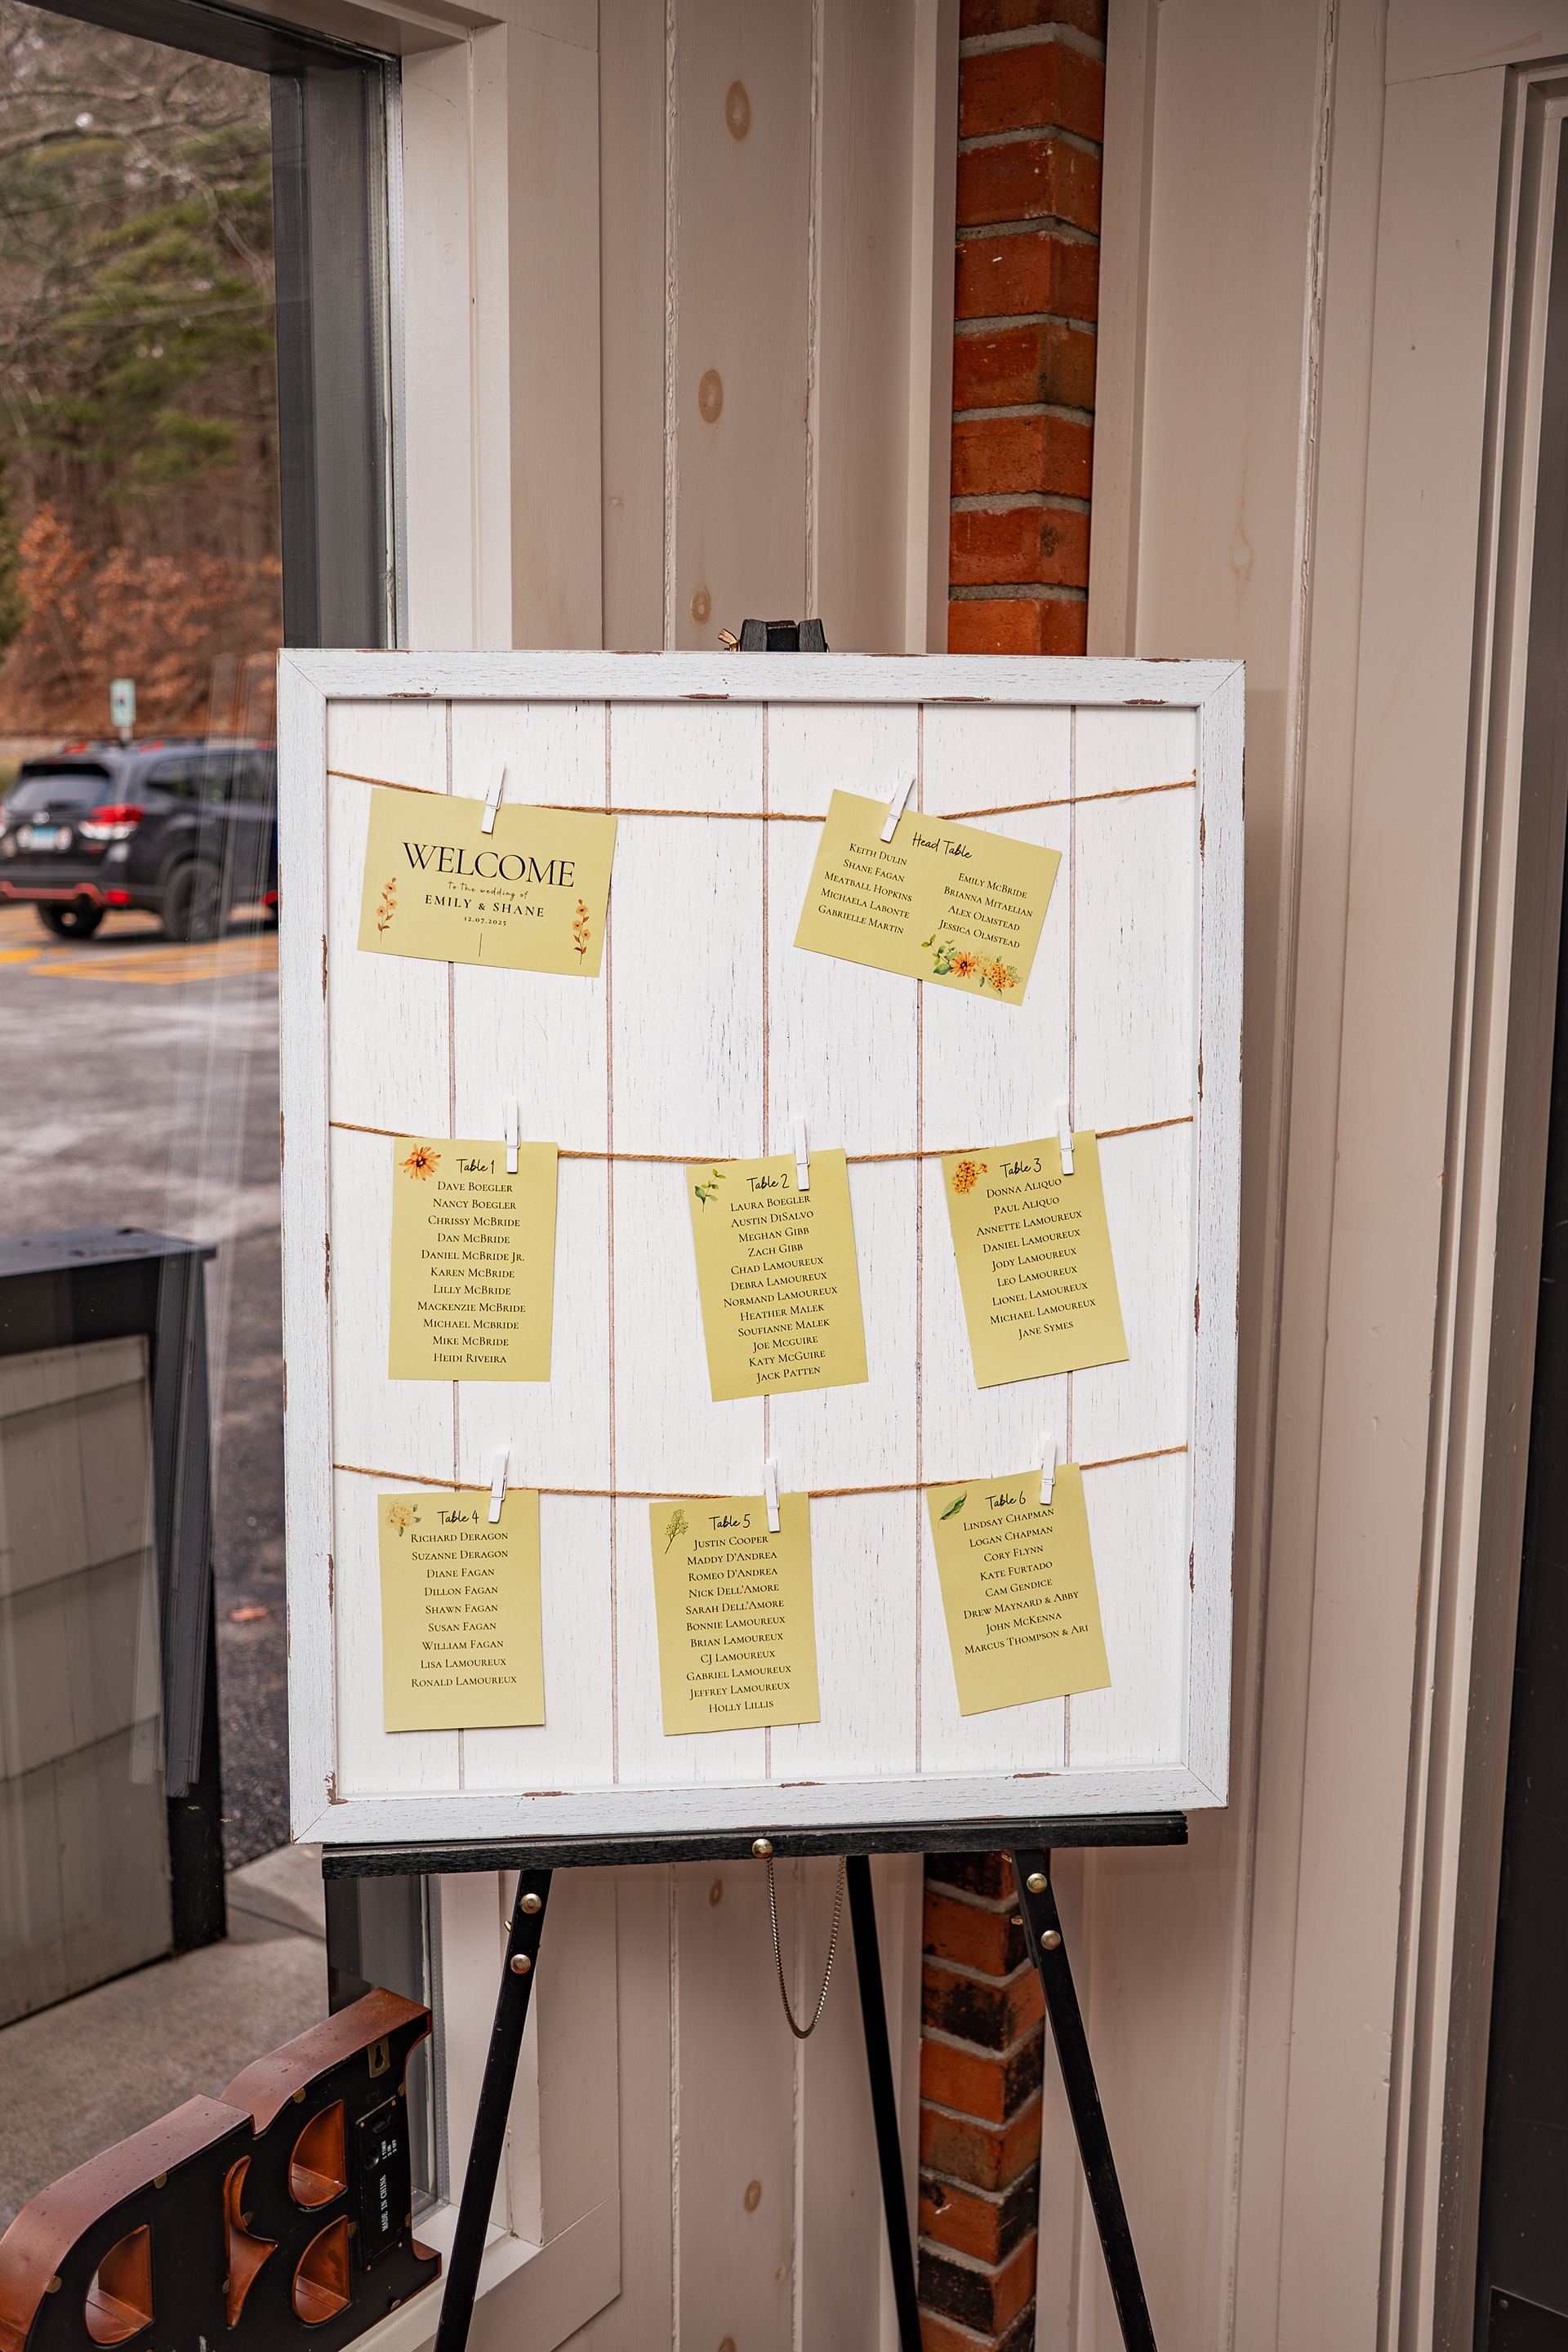 WELCOME
to the wedding of
EMILY & SHANE
12.07.2025
Head Table
KEITH DULIN
SHANE FAGAN
MEATBALL HOPKINS
MICHAELA LABONTE
GABRIELLE MARTIN
EMILY MCBRIDE
BRIANNA MITAELIAN
ALEX OLMSTEAD
JESSICA OLMSTEAD
Table 1
DAVE BOEGLER
NANCY BOEGLER
CHRISSY MCBRIDE
DAN MCBRIDE
DANIEL MCBRIDE JR.
KAREN MCBRIDE
LILLY MCBRIDE
MACKENZIE MCBRIDE
MICHAEL MCBRIDE
MIKE MCBRIDE
HEIDI RIVEIRA
Table 2
LAURA BOEGLER
AUSTIN DISALVO
MEGHAN GIBB
ZACH GIBB
CHAD LAMOUREUX
DEBRA LAMOUREUX
NORMAND LAMOUREUX
HEATHER MALEK
SOUFIANNE MALEK
JOE MCGUIRE
KATY MCGUIRE
JACK PATTEN
Table 3
DONNA ALIQUO
PAUL ALIQUO
ANNETTE LAMOUREUX
DANIEL LAMOUREUX
JODY LAMOUREUX
LEO LAMOUREUX
LIONEL LAMOUREUX
MICHAEL LAMOUREUX
JANE SYMES
Table 4
RICHARD DERAGON
SUZANNE DERAGON
DIANE FAGAN
DILLON FAGAN
SHAWN FAGAN
SUSAN FAGAN
WILLIAM FAGAN
LISA LAMOUREUX
RONALD LAMOUREUX
Table 5
JUSTIN COOPER
MADDY D'ANDREA
ROMEO D'ANDREA
NICK DELL'AMORE
SARAH DELL'AMORE
BONNIE LAMOUREUX
BRIAN LAMOUREUX
CJ LAMOUREUX
GABRIEL LAMOUREUX
JEFFREY LAMOUREUX
HOLLY LILLIS
Table 6
LINDSAY CHAPMAN
LOGAN CHAPMAN
CORY FLYNN
KATE FURTADO
CAM GENDICE
DREW MAYNARD & ABBY
JOHN MCKENNA
MARCUS THOMPSON & ARI
MADE IN CHINA